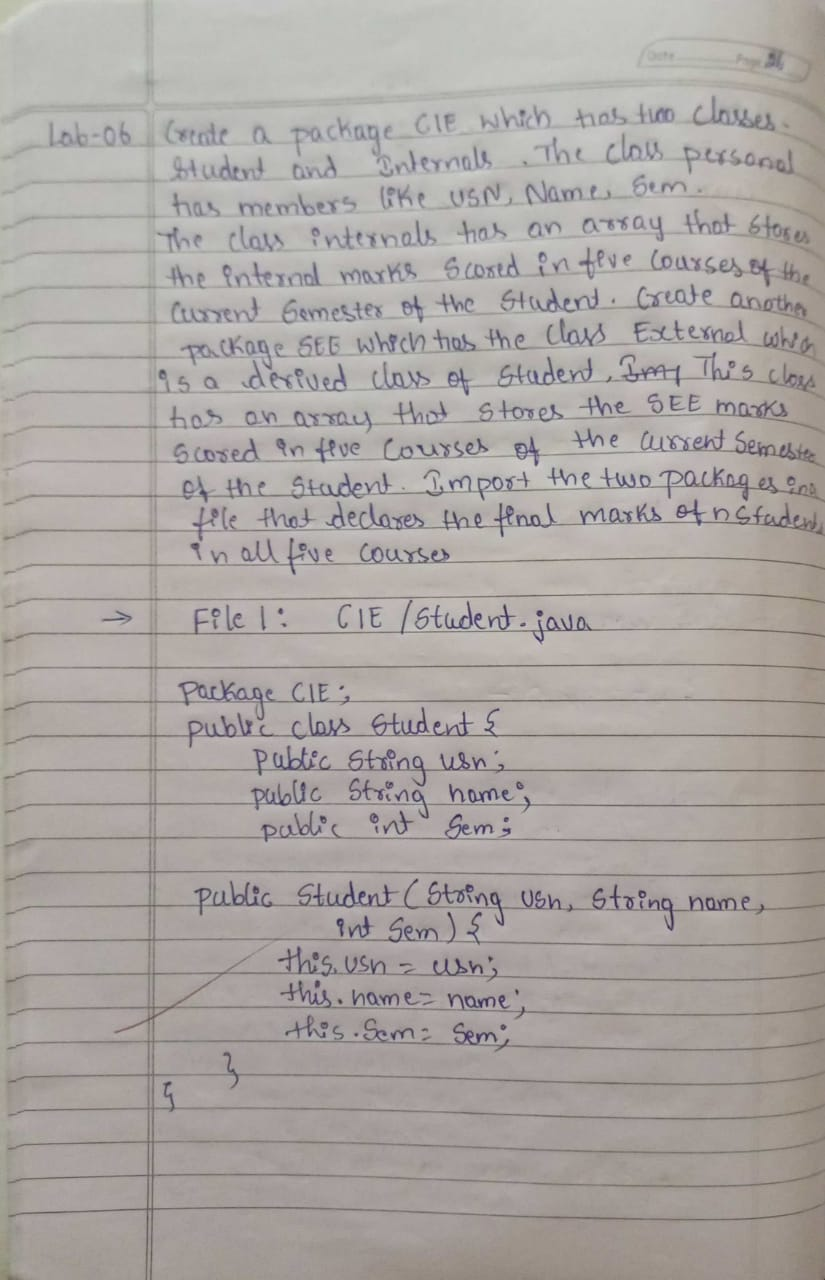 Date Page 26
Lab-06 Create a package CIE which has two classes.
Student and Internals. The class personal
has members like USN, Name, Sem.
The class internals has an array that stores
the internal marks scored in five courses of the
current semester of the student. Create another
package SEE which has the class External which
is a derived class of student, This class
has an array that stores the SEE marks
scored in five courses of the current semester
of the student. Import the two packages in a
file that declares the final marks of n students
in all five courses
→ File 1: CIE /Student.java
package CIE;
public class Student {
public String usn;
public String name;
public int Sem;
public Student (String usn, String name,
int Sem) {
this.usn = usn;
this.name = name;
this.Sem = Sem;
}
}